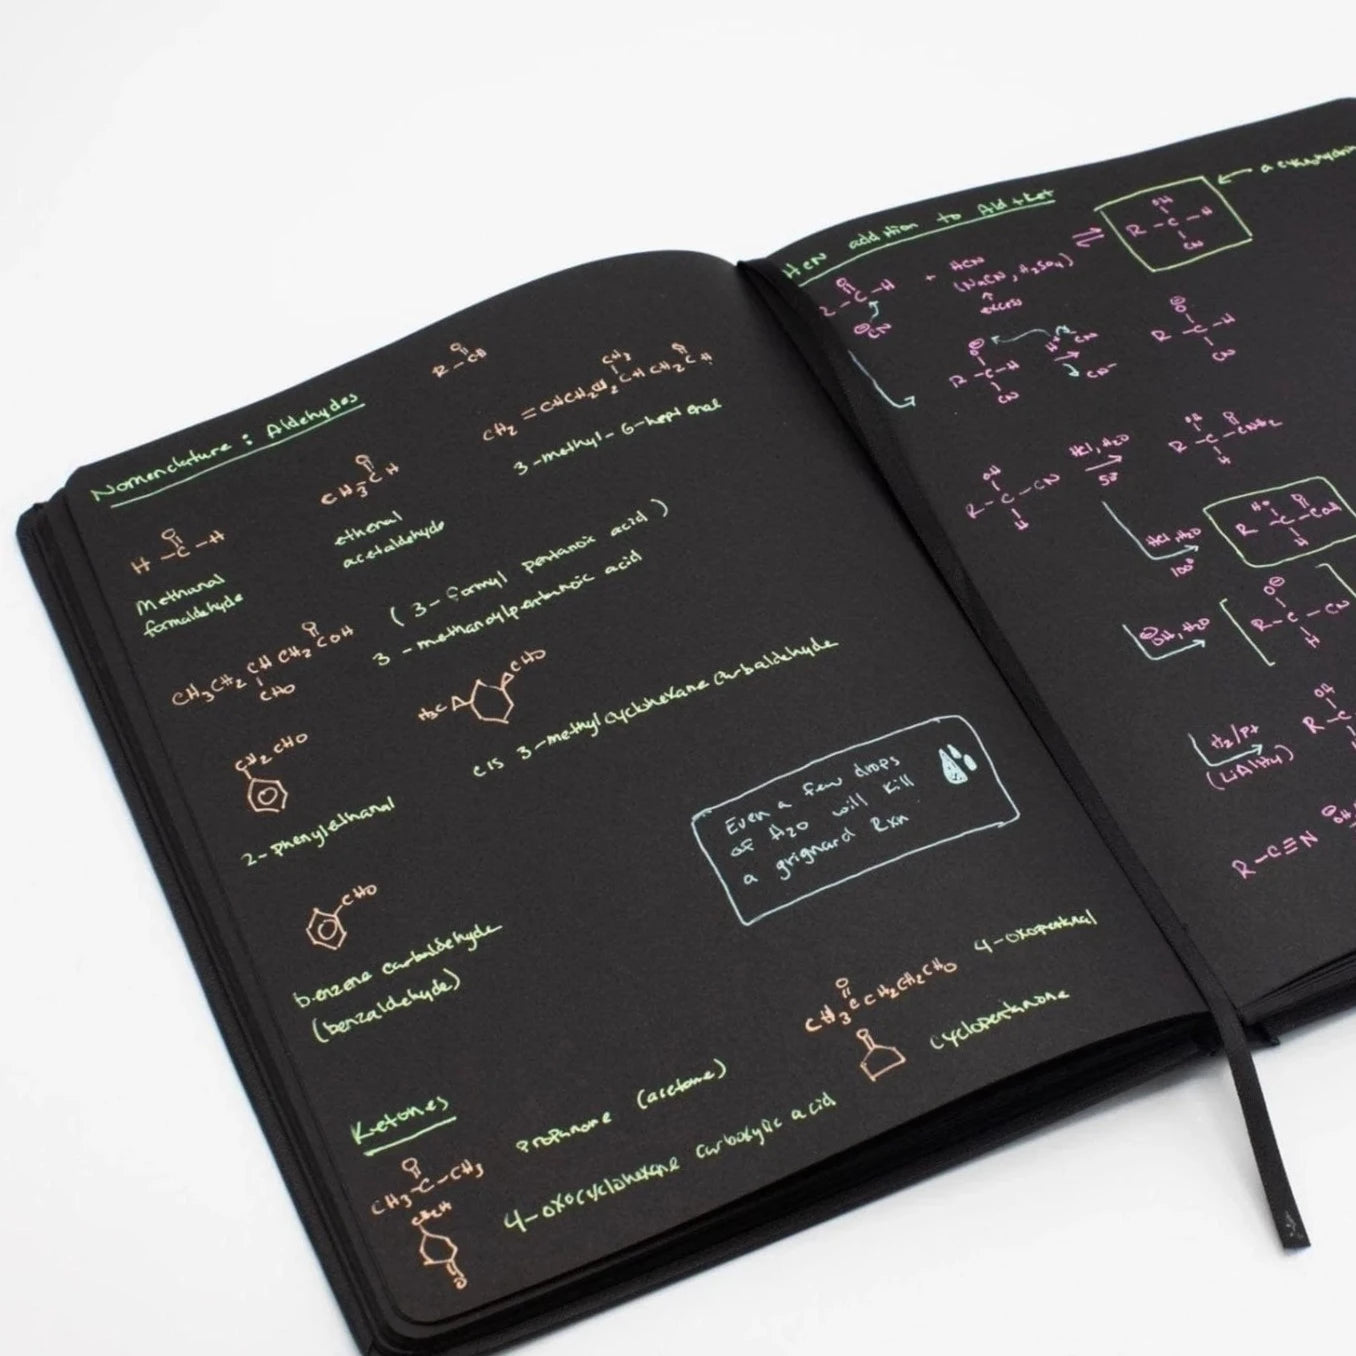 Nomenclature : Aldehydes
R-CH
O
CH2=CHCH2CH2CHCH2CH
CH3
O
3-methyl-6-heptenal
O
CH3CH
ethenal
acetaldehyde
O
H-C-H
Methanal
formaldehyde
(3-formyl pentanoic acid)
3-methanoylpentanoic acid
O
CH3CH2CHCH2COH
CHO
H3C
CHO
cis 3-methylcyclohexane carbaldehyde
CH2CHO
2-phenylethanal
Even a few drops
of H2O will kill
a grignard Rxn
CHO
benzene carbaldehyde
(benzaldehyde)
O
CH3CCH2CH2CHO
4-oxopentanal
O
cyclopentanone
Ketones
O
CH3-C-CH3
propanone (acetone)
4-oxocyclohexane carboxylic acid
O
HCN addition to Ald+Ket
O
C-H
+
HCN
(NaCN, H2SO4)
excess
⇌
OH
R-C-H
CN
⊖CN
O⊖
R-C-H
CN
H-CN
CN-
R-C-H
CN
OH
R-C-CN
H
HCl, H2O
OH
O
R-C-CNH2
H
HCl, H2O
100°
HO
O
R-C-COH
H
⊖OH, H2O
O⊖
R-C-CN
H
H2/Pt
(LiAlH4)
OH
R-C
R-C≡N